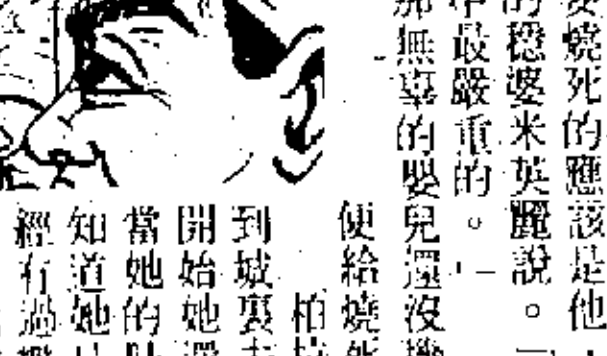 燒死的應該是他
的穩婆米英麗說。
中最嚴重的。
那無辜的嬰兒還沒機
便給燒死
柏
到城裏去
開始她還
當她的
知道她
經有過